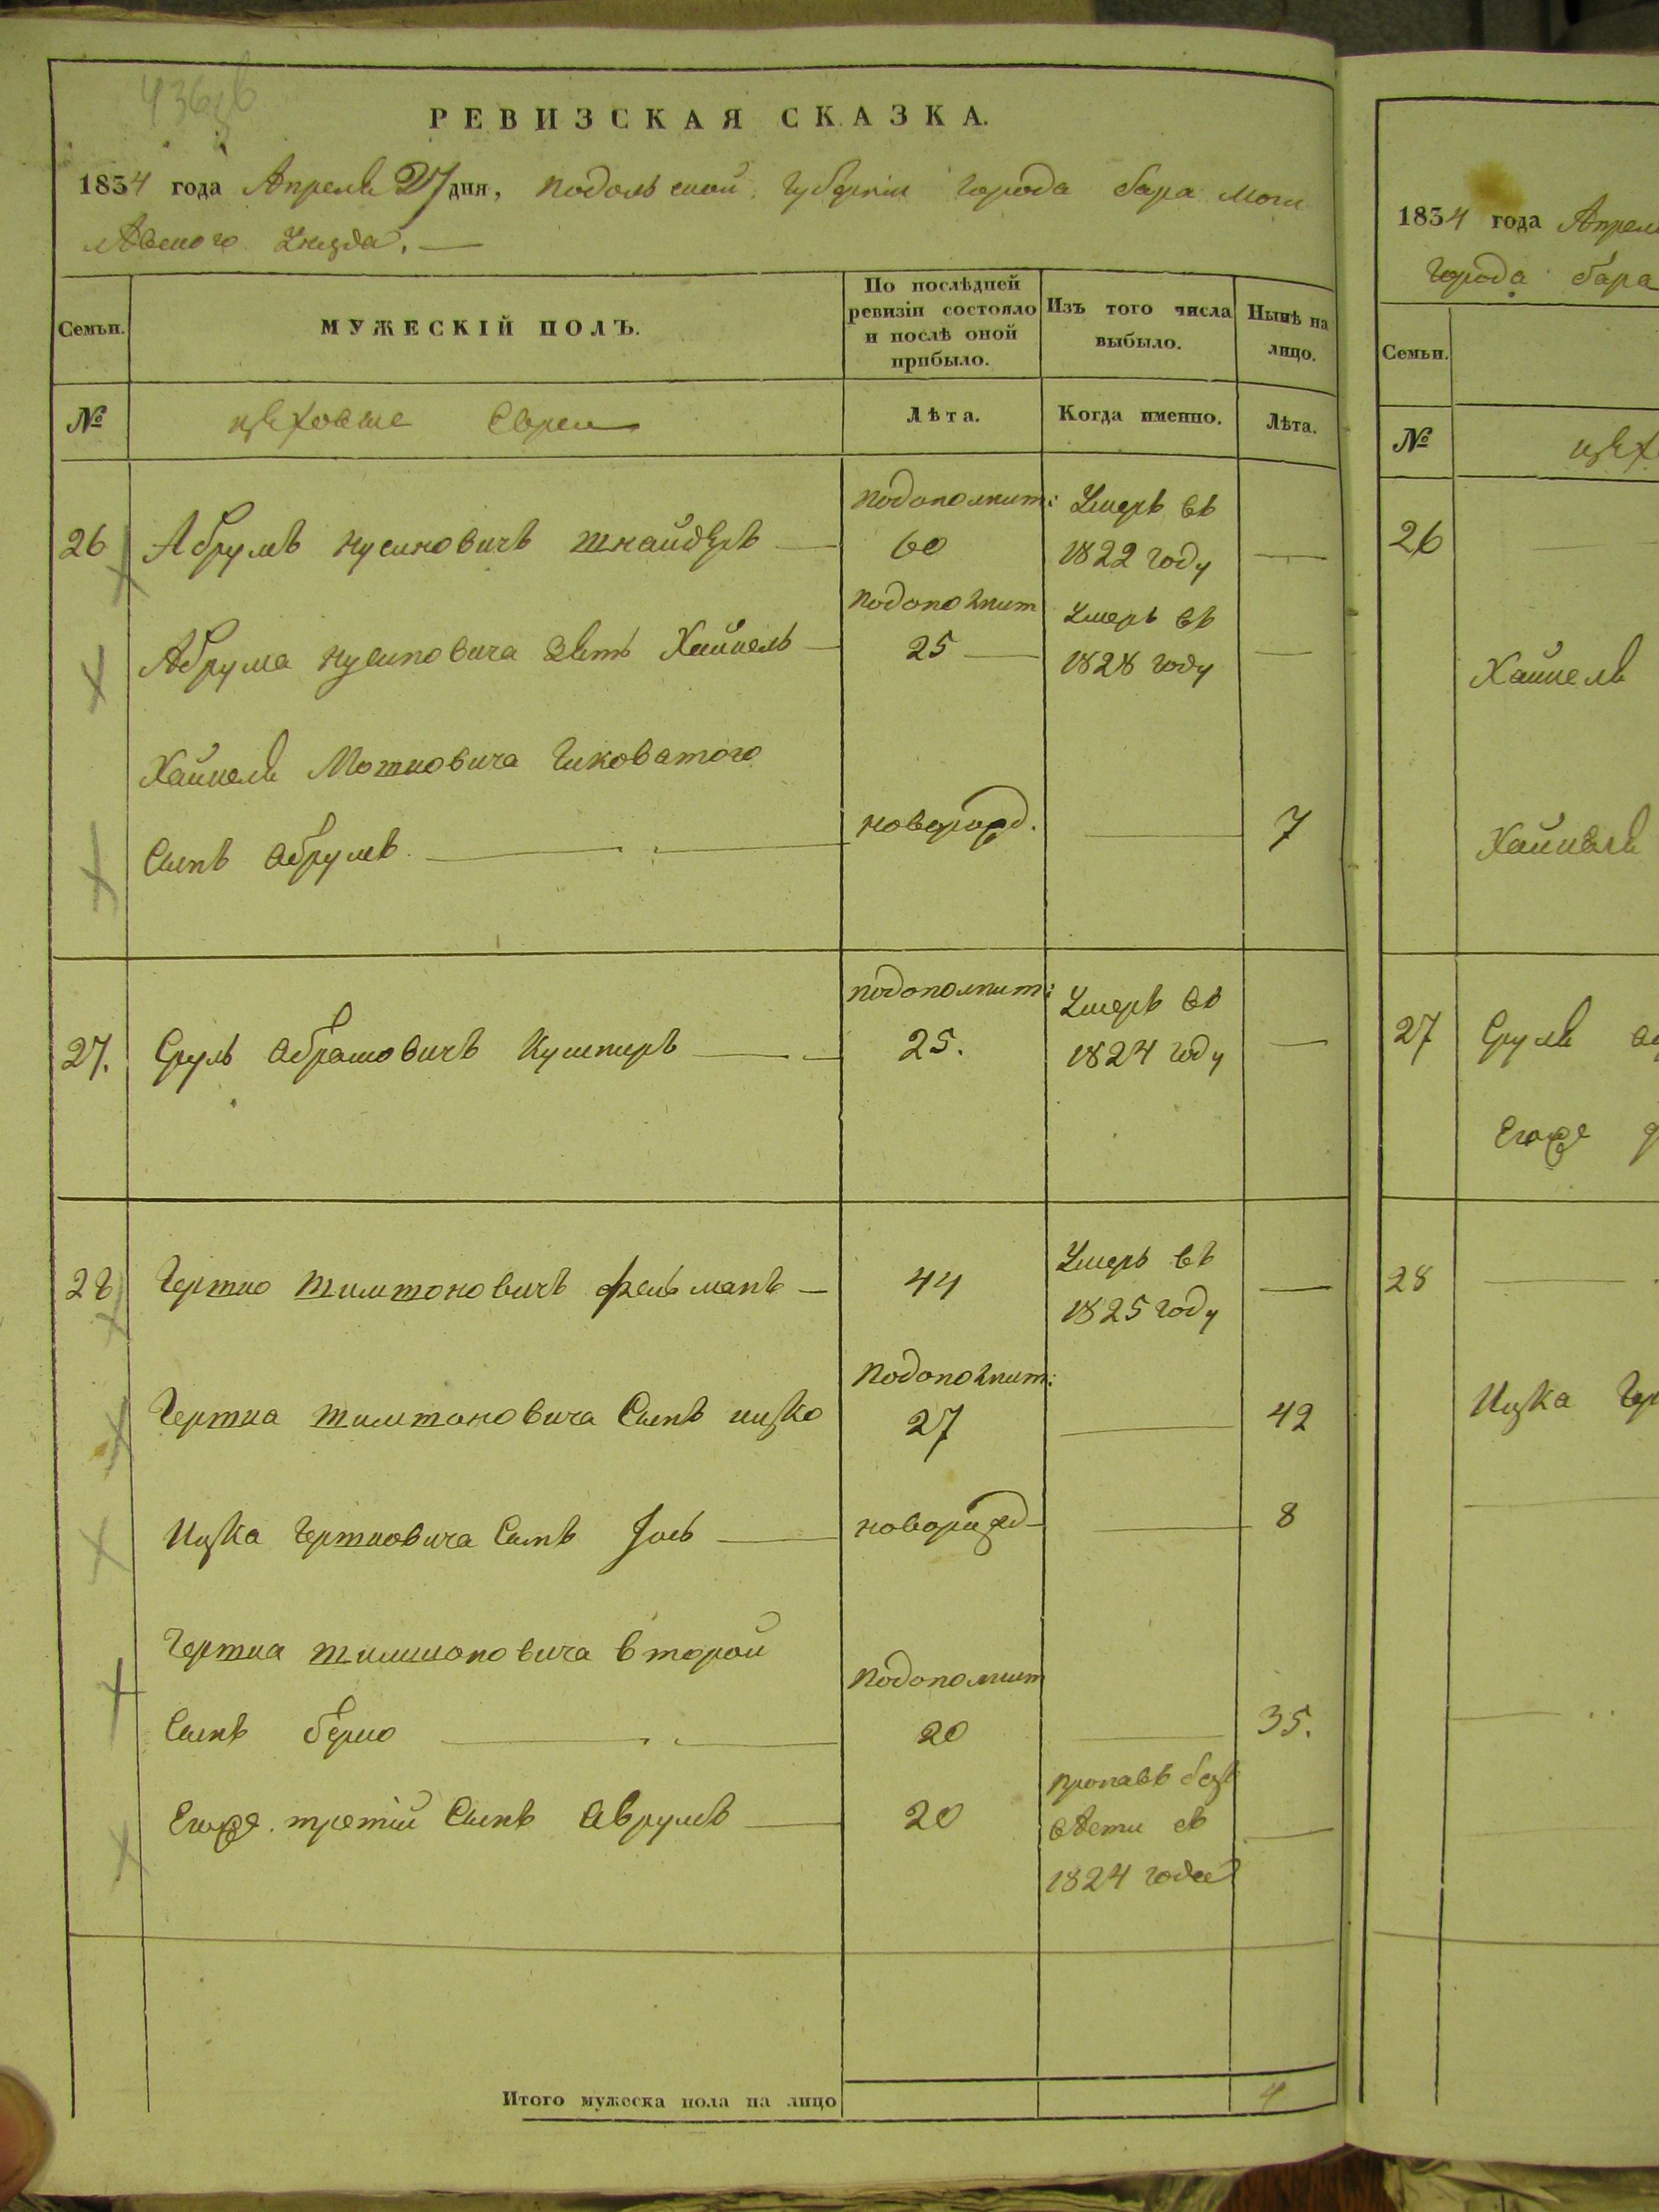 436об
РЕВИЗСКАЯ СКАЗКА.
1834 года Апреля 27 дня, Подольской Губернии города бара Моги
лѣвского Уезда. —
Семьи.
МУЖЕСКІЙ ПОЛЪ.
По послѣдней ревизіи состояло и послѣ оной прибыло.
Изъ того числа выбыло.
Нынѣ на лицо.
№
цѣховые Евреи
Лѣта.
Когда именно.
Лѣта.
26 Абрумъ Нусиновичъ Шнайдеръ — подополнит: 60 Умеръ въ 1822 году —
Абрума Нусиновича зять Хайкель — подополнит 25 — Умеръ въ 1828 году —
Хайкеля Мошковича Чиковатого
Сынъ Абрумъ — новорожд. — 7
27. Сруль Абрамовичъ Кушниръ — подополнит: 25. Умеръ въ 1824 году —
28 Гершко Шимшоновичъ Фельманъ — 44 Умеръ въ 1825 году —
Гершка Шимшоновича Сынъ ицко подополнит: 27 — 42
Ицка Гершковича Сынъ Іось — новорожд — 8
Гершка Шимшоновича второй
Сынъ берко — подополнит 20 — 35.
Егоже третій Сынъ Аврумъ — 20 пропавъ безъ вѣсти съ 1824 года —
Итого мужеска пола на лицо
4
1834 года Апреля
Города бара
Семьи.
№
цѣх
26 —
Хайкеля
Хайкеля
27 Сруля
Егоже
28 —
Ицка Гер